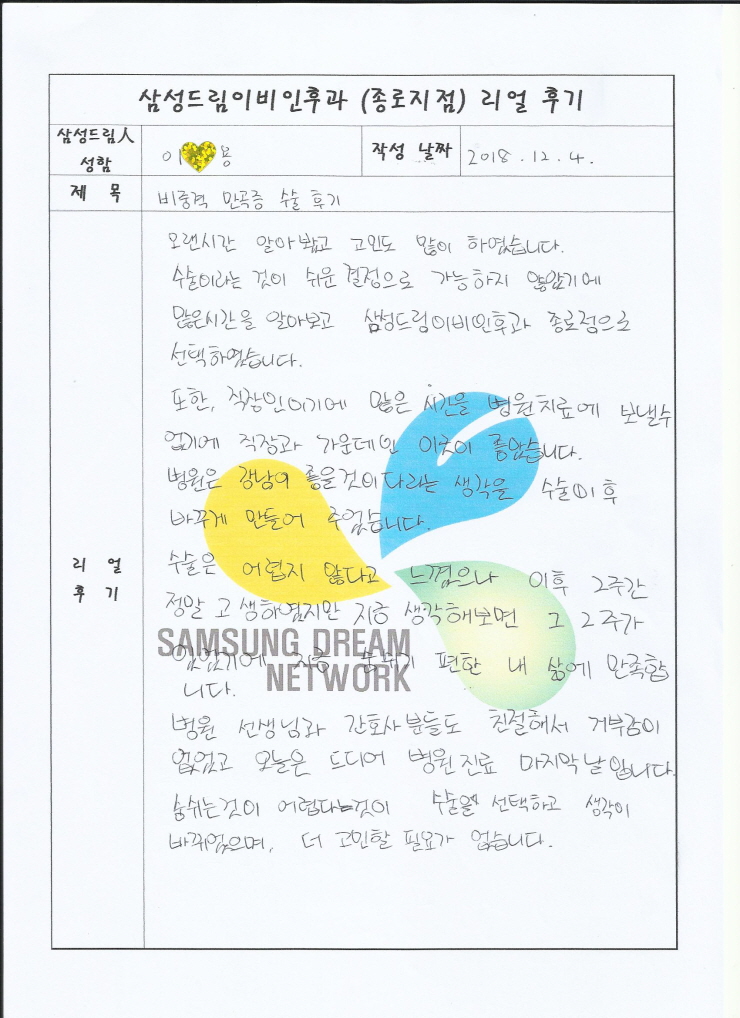 삼성드림이비인후과 (종로지점) 리얼 후기
삼성드림人 성함
이 용
작성 날짜
2018. 12. 4.
제 목
비중격 만곡증 수술 후기
리 얼 후 기
오랜시간 알아봤고 고민도 많이 하였습니다.
수술이라는 것이 쉬운 결정으로 가능하지 않았기에
많은시간을 알아보고 삼성드림이비인후과 종로점으로
선택하였습니다.
또한, 직장인이기에 많은 시간을 병원치료에 보낼수
없기에 직장과 가운데인 이곳이 좋았습니다.
병원은 강남이 좋을것이다라는 생각을 수술이후
바꾸게 만들어 주었습니다.
수술은 어렵지 않다고 느꼈으나 이후 2주간
정말 고생하였지만 지금 생각해보면 그 2주가
있었기에 지금 숨쉬기 편한 내 삶에 만족합
니다.
SAMSUNG DREAM
NETWORK
병원 선생님과 간호사분들도 친절해서 거부감이
없었고 오늘은 드디어 병원진료 마지막날입니다.
숨쉬는것이 어렵다는것이 수술을 선택하고 생각이
바뀌었으며, 더 고민할 필요가 없습니다.